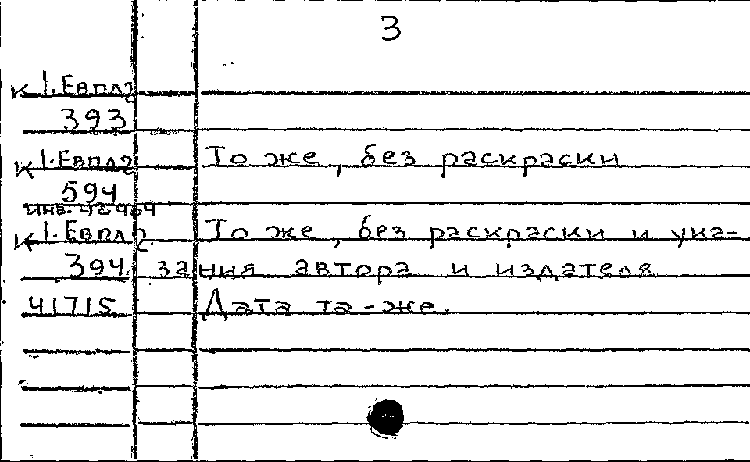 3
К 1. Евпл2
393
К 1. Евпл2 То же, без раскраски
594
инв. 42464
К 1. Евпл2 То же, без раскраски и ука-
394 зания автора и издателя
41715 Дата та-же.